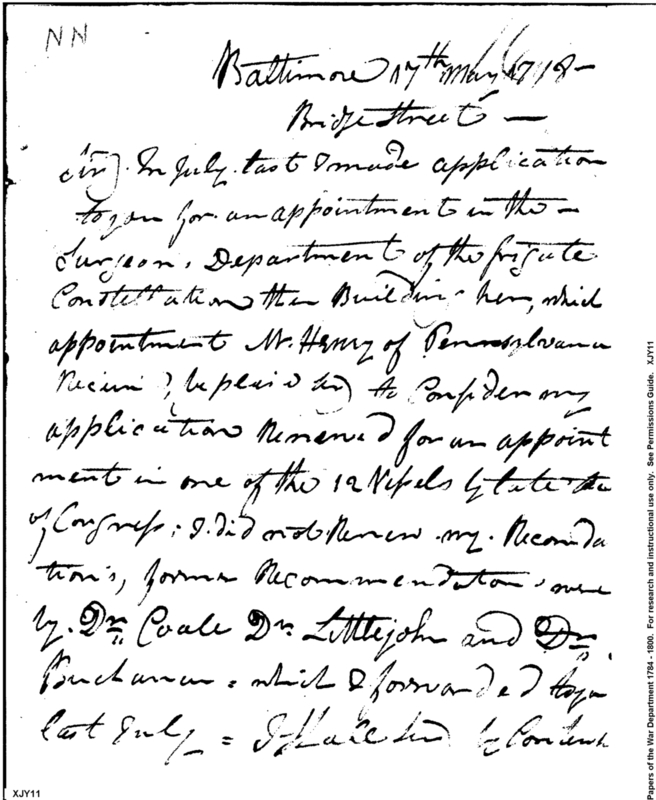 NN
Baltimore 17th May 1798 -
Bridge Street -
Sir). In July last I made application
to you for an appointment in the -
Surgeons Department of the frigate
Constellation then Building here, which
appointment Mr. Henry of Pennsylvania
Received, be pleased Sir) to Consider my
application Renewed for an appoint
ment in one of the 12 Vessels by late
of Congress; I did not Renew my Recomda
tions, former Recommendations were
by Dr. Coale Dr. Littlejohn and Dr.
Buchanan = which I forwarded to you
last July = I shall Send by
XJY11
Papers of the War Department 1784 - 1800. For research and instructional use only. See Permissions Guide. XJY11